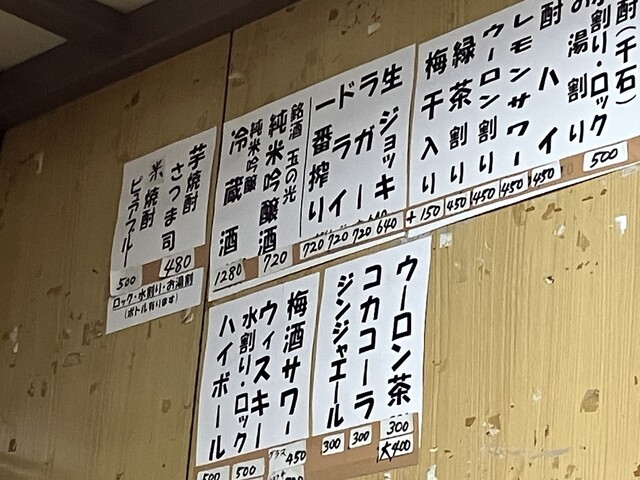 酎(千石)
水割り・ロック
お湯割り
500
酎ハイ
450
レモンサワー
450
ウーロン割り
450
緑茶割り
450
梅干入り
+150
生ジョッキ
640
ラガー
720
ドライ
720
一番搾り
720
銘酒 玉の光
純米吟醸酒
720
純米吟醸
冷蔵酒
1280
芋焼酎
さつま司
480
米焼酎
ピュアブルー
500
ロック・水割り・お湯割
(ボトル有ります)
ウーロン茶
300
大400
コカコーラ
300
ジンジャエール
300
梅酒サワー
450
ウィスキー
水割り・ロック
500
ハイボール
500